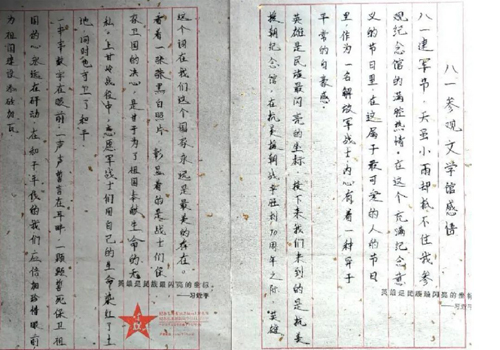 八一参观文学馆感悟
八一建军节,天虽小雨却抵不住我参
观纪念馆的满腔热情。在这个充满纪念意
义的节日里,在这属于最可爱的人的节日
里,作为一名解放军战士内心有着一种异于
平常的自豪感。
英雄是民族最闪亮的坐标,接下来我们来到的是抗美
援朝纪念馆,在抗美援朝战争胜利70周年之际,英雄
英雄是民族最闪亮的坐标
——习近平
这个词在我们这个国家永远是最美的存在。
看着一张张黑白照片,彰显着的是战士们保
家卫国的决心,是甘于为了祖国奉献生命的无
私,上甘岭战役中,志愿军战士们用自己的生命染红了土
地,同时也守卫了和平
一串串数字在眼前,一声声誓言在耳畔,一颗颗誓死保卫祖
国的心永远在跳动,在和平年代的我们应倍加珍惜眼前
为祖国建设添砖加瓦
英雄是民族最闪亮的坐标
——习近平